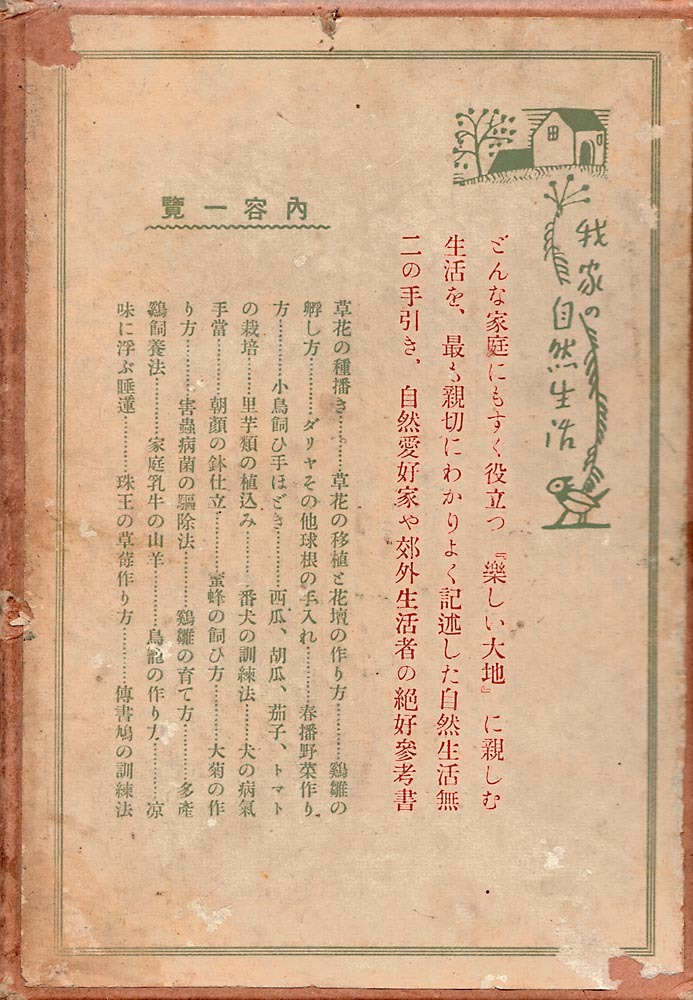 我家の自然生活
どんな家庭にもすぐ役立つ『樂しい大地』に親しむ
生活を、最も親切にわかりよく記述した自然生活無
二の手引き、自然愛好家や郊外生活者の絕好參考書
內容一覽
草花の種播き………草花の移植と花壇の作り方………鷄雛の
孵し方………ダリヤその他球根の手入れ………春播野菜作り
方………小鳥飼ひ手ほどき………西瓜、胡瓜、茄子、トマト
の栽培………里芋類の植込み………番犬の訓練法………犬の病氣
手當………朝顏の鉢仕立………蜜蜂の飼ひ方………大菊の作
り方………害蟲病菌の驅除法………鷄雛の育て方………多產
鷄飼養法………家庭乳牛の山羊………鳥籠の作り方………凉
味に浮ぶ睡蓮………珠玉の草莓作り方………傳書鳩の訓練法